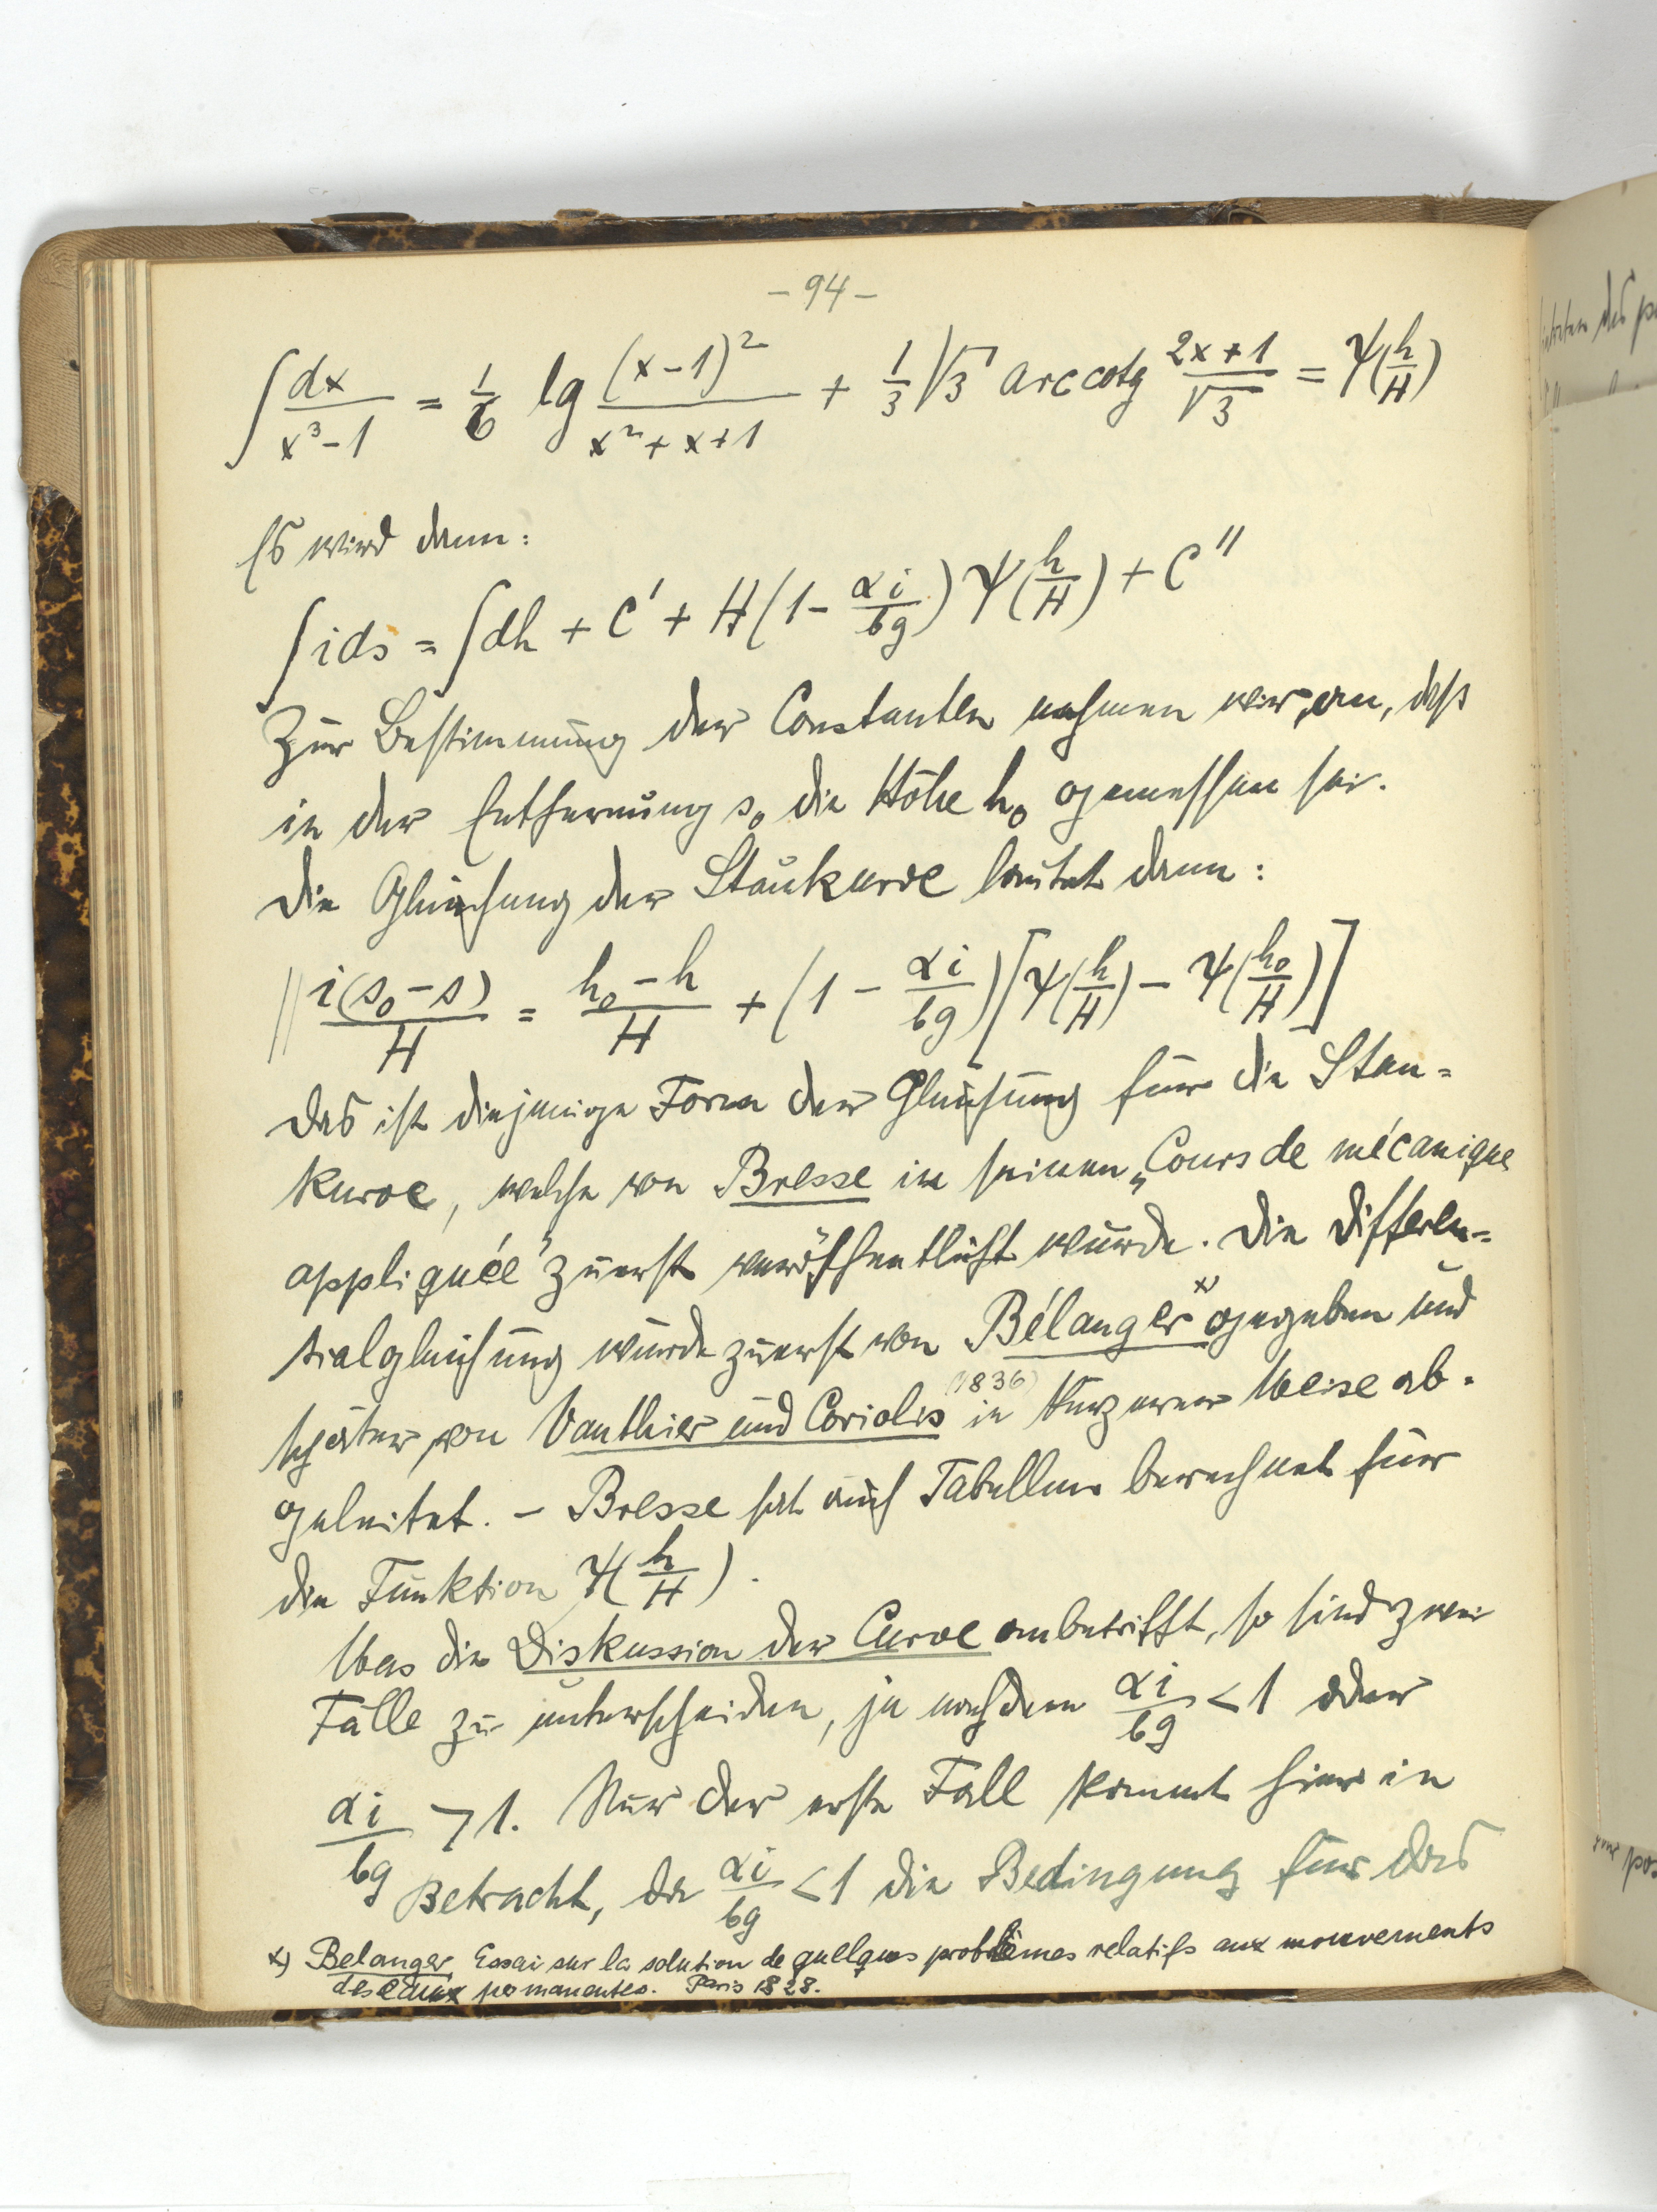 - 94 -
∫ dx / (x³ - 1) = 1/6 lg (x - 1)² / (x² + x + 1) + 1/3 √3 arc cotg (2x + 1)/√3 = Ψ(h/H)
Es wird dann:
∫ ids = ∫ dh + C' + H(1 - αi/bg) Ψ(h/H) + C''
Zur Bestimmung der Constanten nehmen wir an, daß
in der Entfernung s₀ die Höhe h₀ gemessen sei.
Die Gleichung der Staukurve lautet dann:
|| i(s₀ - s)/H = (h₀ - h)/H + (1 - αi/bg)[Ψ(h/H) - Ψ(h₀/H)]
Das ist diejenige Form der Gleichung für die Stau=
kurve, welche von Bresse in seinem „Cours de mécanique
appliquée" zuerst veröffentlicht wurde. Die Differen=
tialgleichung wurde zuerst von Bélanger x) gegeben und
(1836)
später von Vauthier und Coriolis in kurzerer Weise ab=
geleitet. - Bresse hat auch Tabellen berechnet für
die Funktion Ψ(h/H).
Was die Diskussion der Curve anbetrifft, so sind zwei
Fälle zu unterscheiden, je nachdem αi/bg < 1 oder
αi/bg > 1. Nur der erste Fall kommt hier in
Betracht, da αi/bg < 1 die Bedingung für das
x) Belanger, Essai sur la solution de quelques problèmes relatifs aux mouvements
des eaux permanentes. Paris 1828.